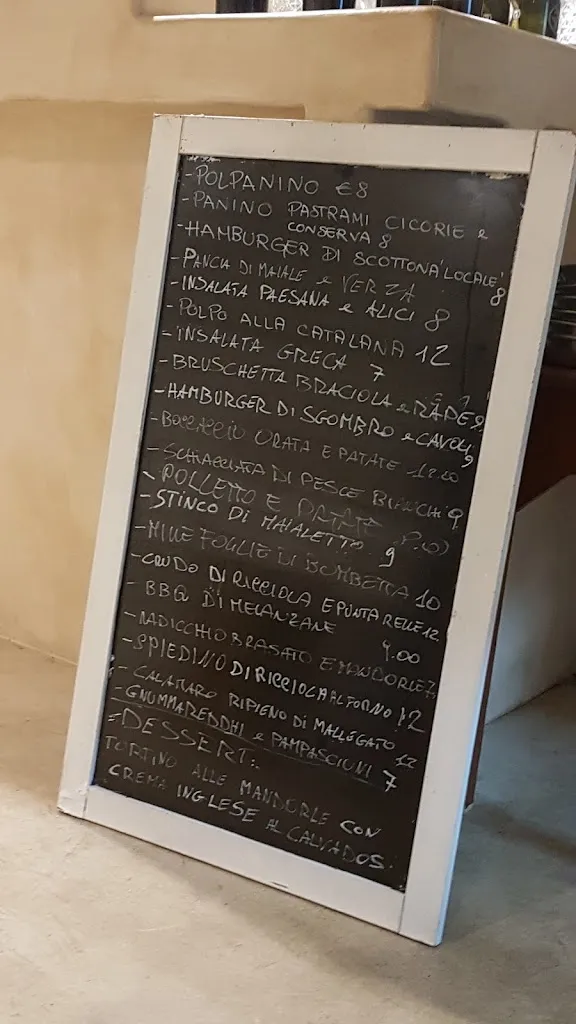 -POLPANINO €8
-PANINO PASTRAMI CICORIE e
CONSERVA 8
-HAMBURGER DI SCOTTONA 'LOCALE'
8
-PANCIA DI MAIALE e VERZA
-INSALATA PAESANA e ALICI 8
-POLPO ALLA CATALANA 12
-INSALATA GRECA 7
-BRUSCHETTA BRACIOLA e RÀPE
-HAMBURGER DI SGOMBRO e CAVOLI 9
-BOCCACCIO ORATA E PATATE 12.00
-SCHIACCIATA DI PESCE BIANCHI 9
-POLLETTO E PATATE
-STINCO DI MAIALETTO 9
-MILLE FOGLIE DI BOMBETTA 10
-CRUDO DI RICCIOLA E PUNTARELLE 12
-BBQ DI MELANZANE 9.00
-RADICCHIO BRASATO E MANDORLE 7
-SPIEDINO DI RICCIOLA AL FORNO 12
-CALAMARO RIPIENO DI MALLEGATO 12
-GNUMMAREDDHI e PAMPASCIONI 7
=DESSERT:.
TORTINO ALLE MANDORLE CON
CREMA INGLESE AL CALVADOS.